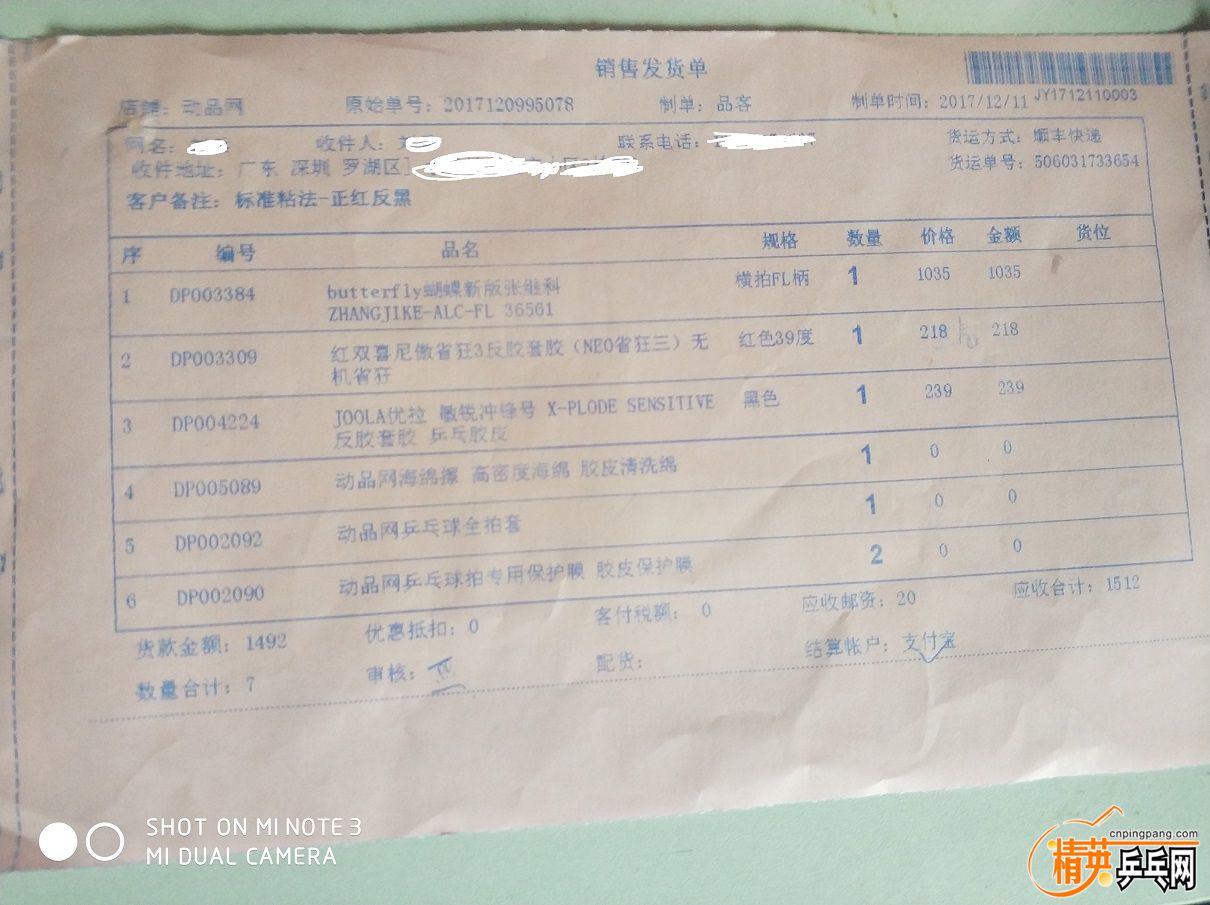 销售发货单
JY1712110003
店铺: 动品网 原始单号: 2017120995078 制单: 品客 制单时间: 2017/12/11
网名: 收件人: 联系电话: 货运方式: 顺丰快递
收件地址: 广东 深圳 罗湖区 货运单号: 506031733654
客户备注: 标准粘法-正红反黑
序 编号 品名 规格 数量 价格 金额 货位
1 DP003384 butterfly蝴蝶新版张继科 横拍FL柄 1 1035 1035
ZHANGJIKE-ALC-FL 36561
2 DP003309 红双喜尼傲省狂3反胶套胶（NEO省狂三）无 红色39度 1 218 218
机省狂
3 DP004224 JOOLA优拉 敏锐冲锋号 X-PLODE SENSITIVE 黑色 1 239 239
反胶套胶 乒乓胶皮
4 DP005089 动品网海绵擦 高密度海绵 胶皮清洗绵 1 0 0
5 DP002092 动品网乒乓球全拍套 1 0 0
6 DP002090 动品网乒乓球拍专用保护膜 胶皮保护膜 2 0 0
货款金额: 1492 优惠抵扣: 0 客付税额: 0 应收邮资: 20 应收合计: 1512
数量合计: 7 审核: 配货: 结算帐户: 支付宝
SHOT ON MI NOTE 3
MI DUAL CAMERA
cnpingpang.com
精英乒乓网